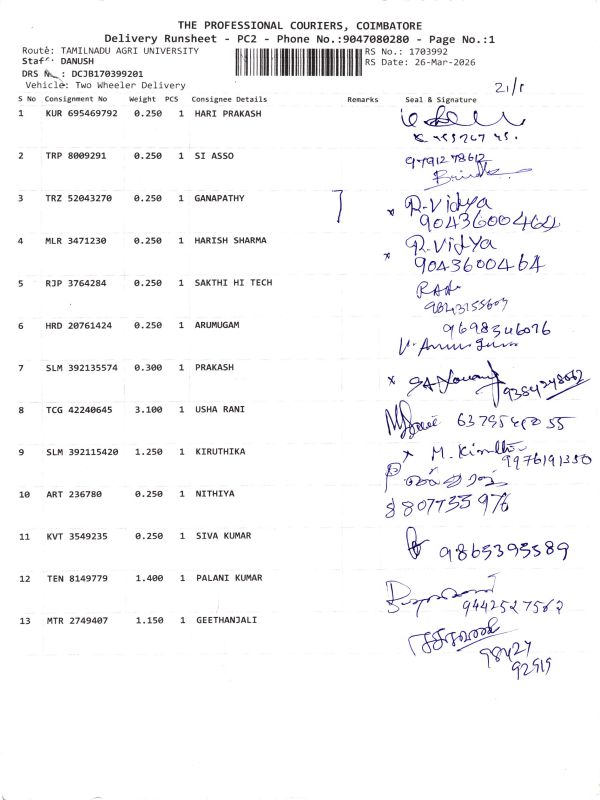 THE PROFESSIONAL COURIERS, COIMBATORE
Delivery Runsheet - PC2 - Phone No.:9047080280 - Page No.:1
Route: TAMILNADU AGRI UNIVERSITY RS No.: 1703992
Staff: DANUSH RS Date: 26-Mar-2026
DRS No.: DCJB170399201
Vehicle: Two Wheeler Delivery
21/1
S No Consignment No Weight PCS Consignee Details Remarks Seal & Signature
1 KUR 695469792 0.250 1 HARI PRAKASH
2 TRP 8009291 0.250 1 SI ASSO 9791278612
3 TRZ 52043270 0.250 1 GANAPATHY x R.Vidya
9043600464
4 MLR 3471230 0.250 1 HARISH SHARMA x R.Vidya
9043600464
5 RJP 3764284 0.250 1 SAKTHI HI TECH
6 HRD 20761424 0.250 1 ARUMUGAM 9698346076
7 SLM 392135574 0.300 1 PRAKASH x 9384248062
8 TCG 42240645 3.100 1 USHA RANI
9 SLM 392115420 1.250 1 KIRUTHIKA x M.
9976191350
10 ART 236780 0.250 1 NITHIYA
11 KVT 3549235 0.250 1 SIVA KUMAR 9865395589
12 TEN 8149779 1.400 1 PALANI KUMAR
9442527562
13 MTR 2749407 1.150 1 GEETHANJALI
98427
92919